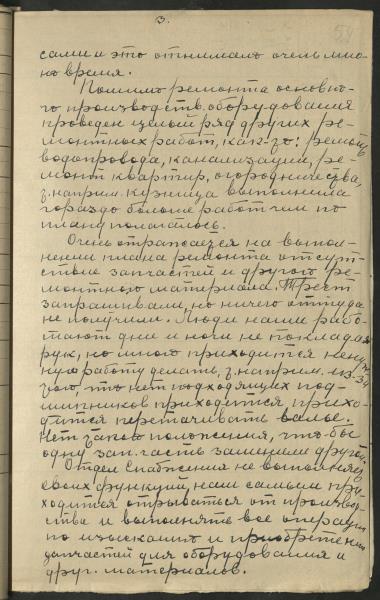 3.
сами и это отнимало очень мно-
го время.
Помимо ремонта основно-
го производств. оборудования
проведен целый ряд других ре-
монтных работ, как-то: ремонт
водопровода, канализации, ре-
монт квартир, огородничества,
напрям. кузница выполнила
гораздо больше работ чем по
плану полагалось.
Очень отражается на выпол-
нении плана ремонта отсутс-
твие запчастей и другого ре-
монтного материала. Трест
запрашивали, но ничего оттуда
не получили. Люди наши рабо-
тают дни и ночи не покладая
рук, но много приходится ненуж-
ную работу делать,
что нет подходящих под-
шипников приходится прихо-
дится перетачивать валы.
Нет такого положения, что-бы
одну зап. часть заменили другой.
Отдел Снабжения не выполняет
своих функций, нам самим при-
ходится отрываться от производ-
ства и выполнять все операции
по изысканию и приобретению
запчастей для оборудования и
друг. материалов.